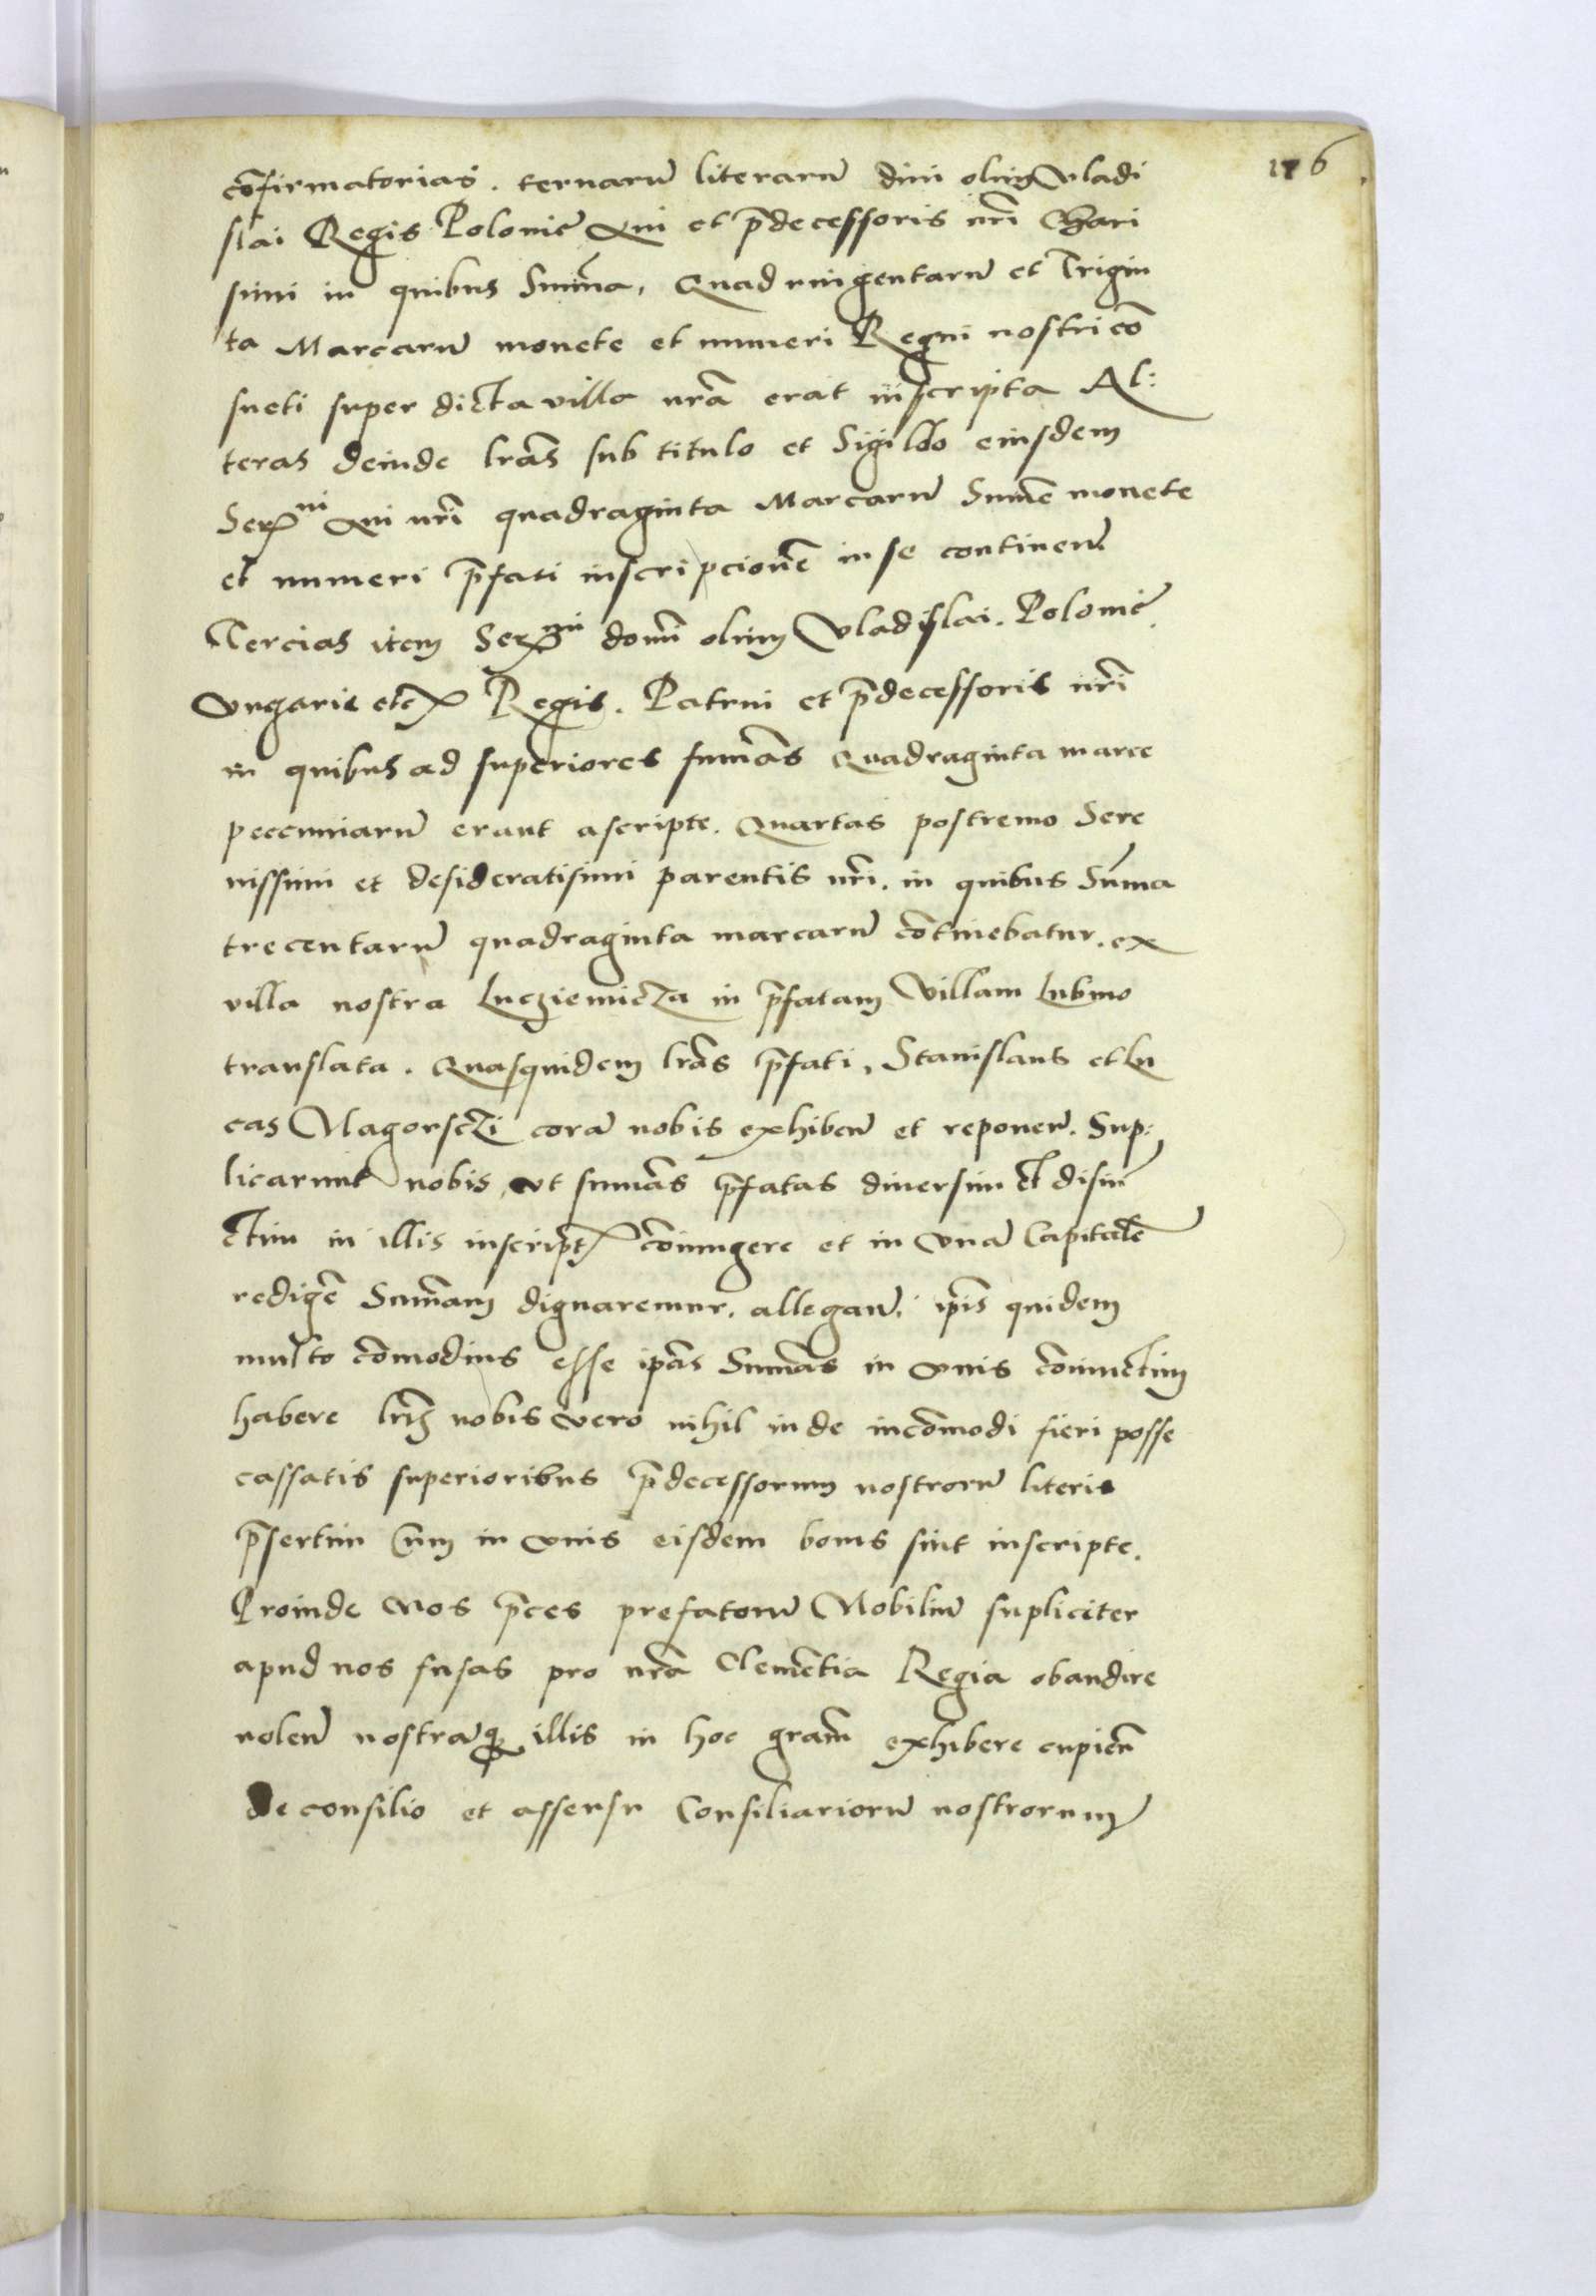 176
cōfirmatorias. ternarū literarū diui olim Vladi
slai Regis Polonie Aui et p̄decessoris nr̄i Chari
simi in quibus Sum̄a, Quadringentarū et Trigin
ta Marcarū monete et numeri Regni nostri cō
sueti super dicta villa nr̄a erat inscripta Al:
teras deinde lr̄as sub titulo et Sigillo eiusdem
Ser^mi Aui nr̄i quadraginta Marcarū Sum̄e monete
et numeri p̄fati inscripcionē in se continen̄
Tercias item Ser^mi domī olim Vladislai. Polonie
Vngarie etc Regis. Patrui et p̄decessoris nr̄i
in quibus ad superiores sum̄as Quadraginta marce
pecuniarū erant ascripte. Quartas postremo Sere
nissimi et desideratisimi parentis nr̄i. in quibus Sum̄a
trecentarū quadraginta marcarū cōtinebatur. ex
villa nostra in p̄fatam Villam Lubino
translata. Quasquidem lr̄as p̄fati, Stanislaus et Lu
cas Magorsczi corā nobis exhiben̄ et reponen̄. Sup:
licarunt nobis, vt sum̄as p̄fatas diuersim et disiū
ctim in illis inscript cōiungere et in vnā Capitalē
redigē Sum̄am dignaremur. allegan̄. ip̄is quidem
multo cōmodius esse ip̄as Sum̄as in vnis cōiunctim
habere lr̄is nobis vero nihil inde incōmodi fieri posse
cassatis superioribus p̄decessorum nostrorū literis
p̄sertim cum in vnis eisdem bonis sint inscripte.
Proinde Nos p̄ces prefatorū Nobiliū supliciter
apud nos fusas pro nr̄a Clemētia Regia obaudire
nolen̄ nostrāq illis in hoc gram̄ exhibere cupien̄
de consilio et assensu Consiliariorū nostrorum